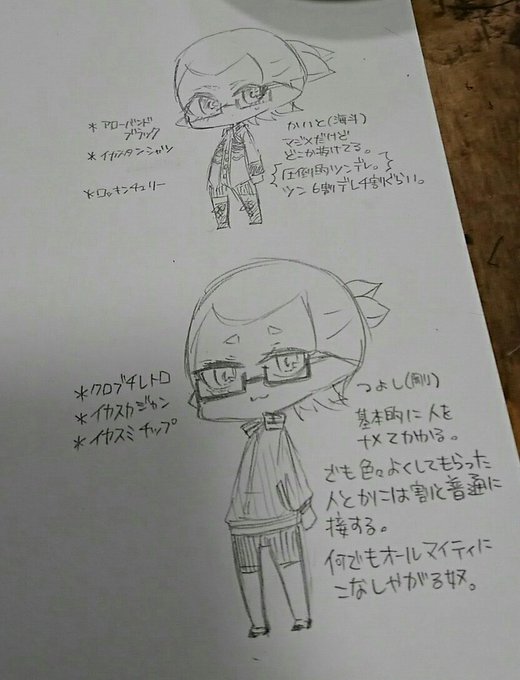 *アローバンド
ブラック
*イカスタンシャツ
*ロッキンチェリー
かいと(海斗)
マジメだけど
どこか抜けてる。
圧倒的ツンデレ。
ツン6割デレ4割ぐらい。
*クロブチレトロ
*イカスカジャン
*イカスミチップ
つよし(剛)
基本的に人を
ナメてかかる。
でも色々よくしてもらった
人とかには割と普通に
接する。
何でもオールマイティに
こなしやがる奴。